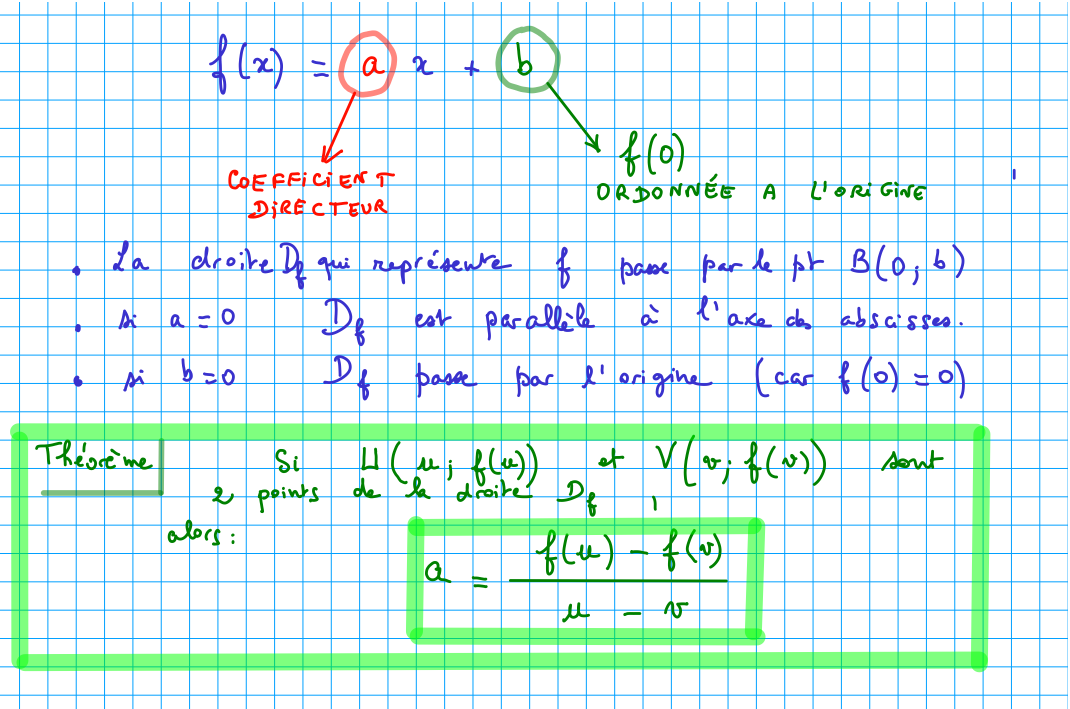 f(x) = a x + b
f(0)
COEFFICIENT
DIRECTEUR
ORDONNÉE A L'ORIGINE
. La droite Df qui représente f passe par le pt B(0; b)
. si a = 0 Df est parallèle à l'axe des abscisses.
. si b = 0 Df passe par l'origine (car f(0) = 0)
Théorème Si U(u; f(u)) et V(v; f(v)) sont
2 points de la droite Df,
alors:
a = f(u) - f(v)
u - v